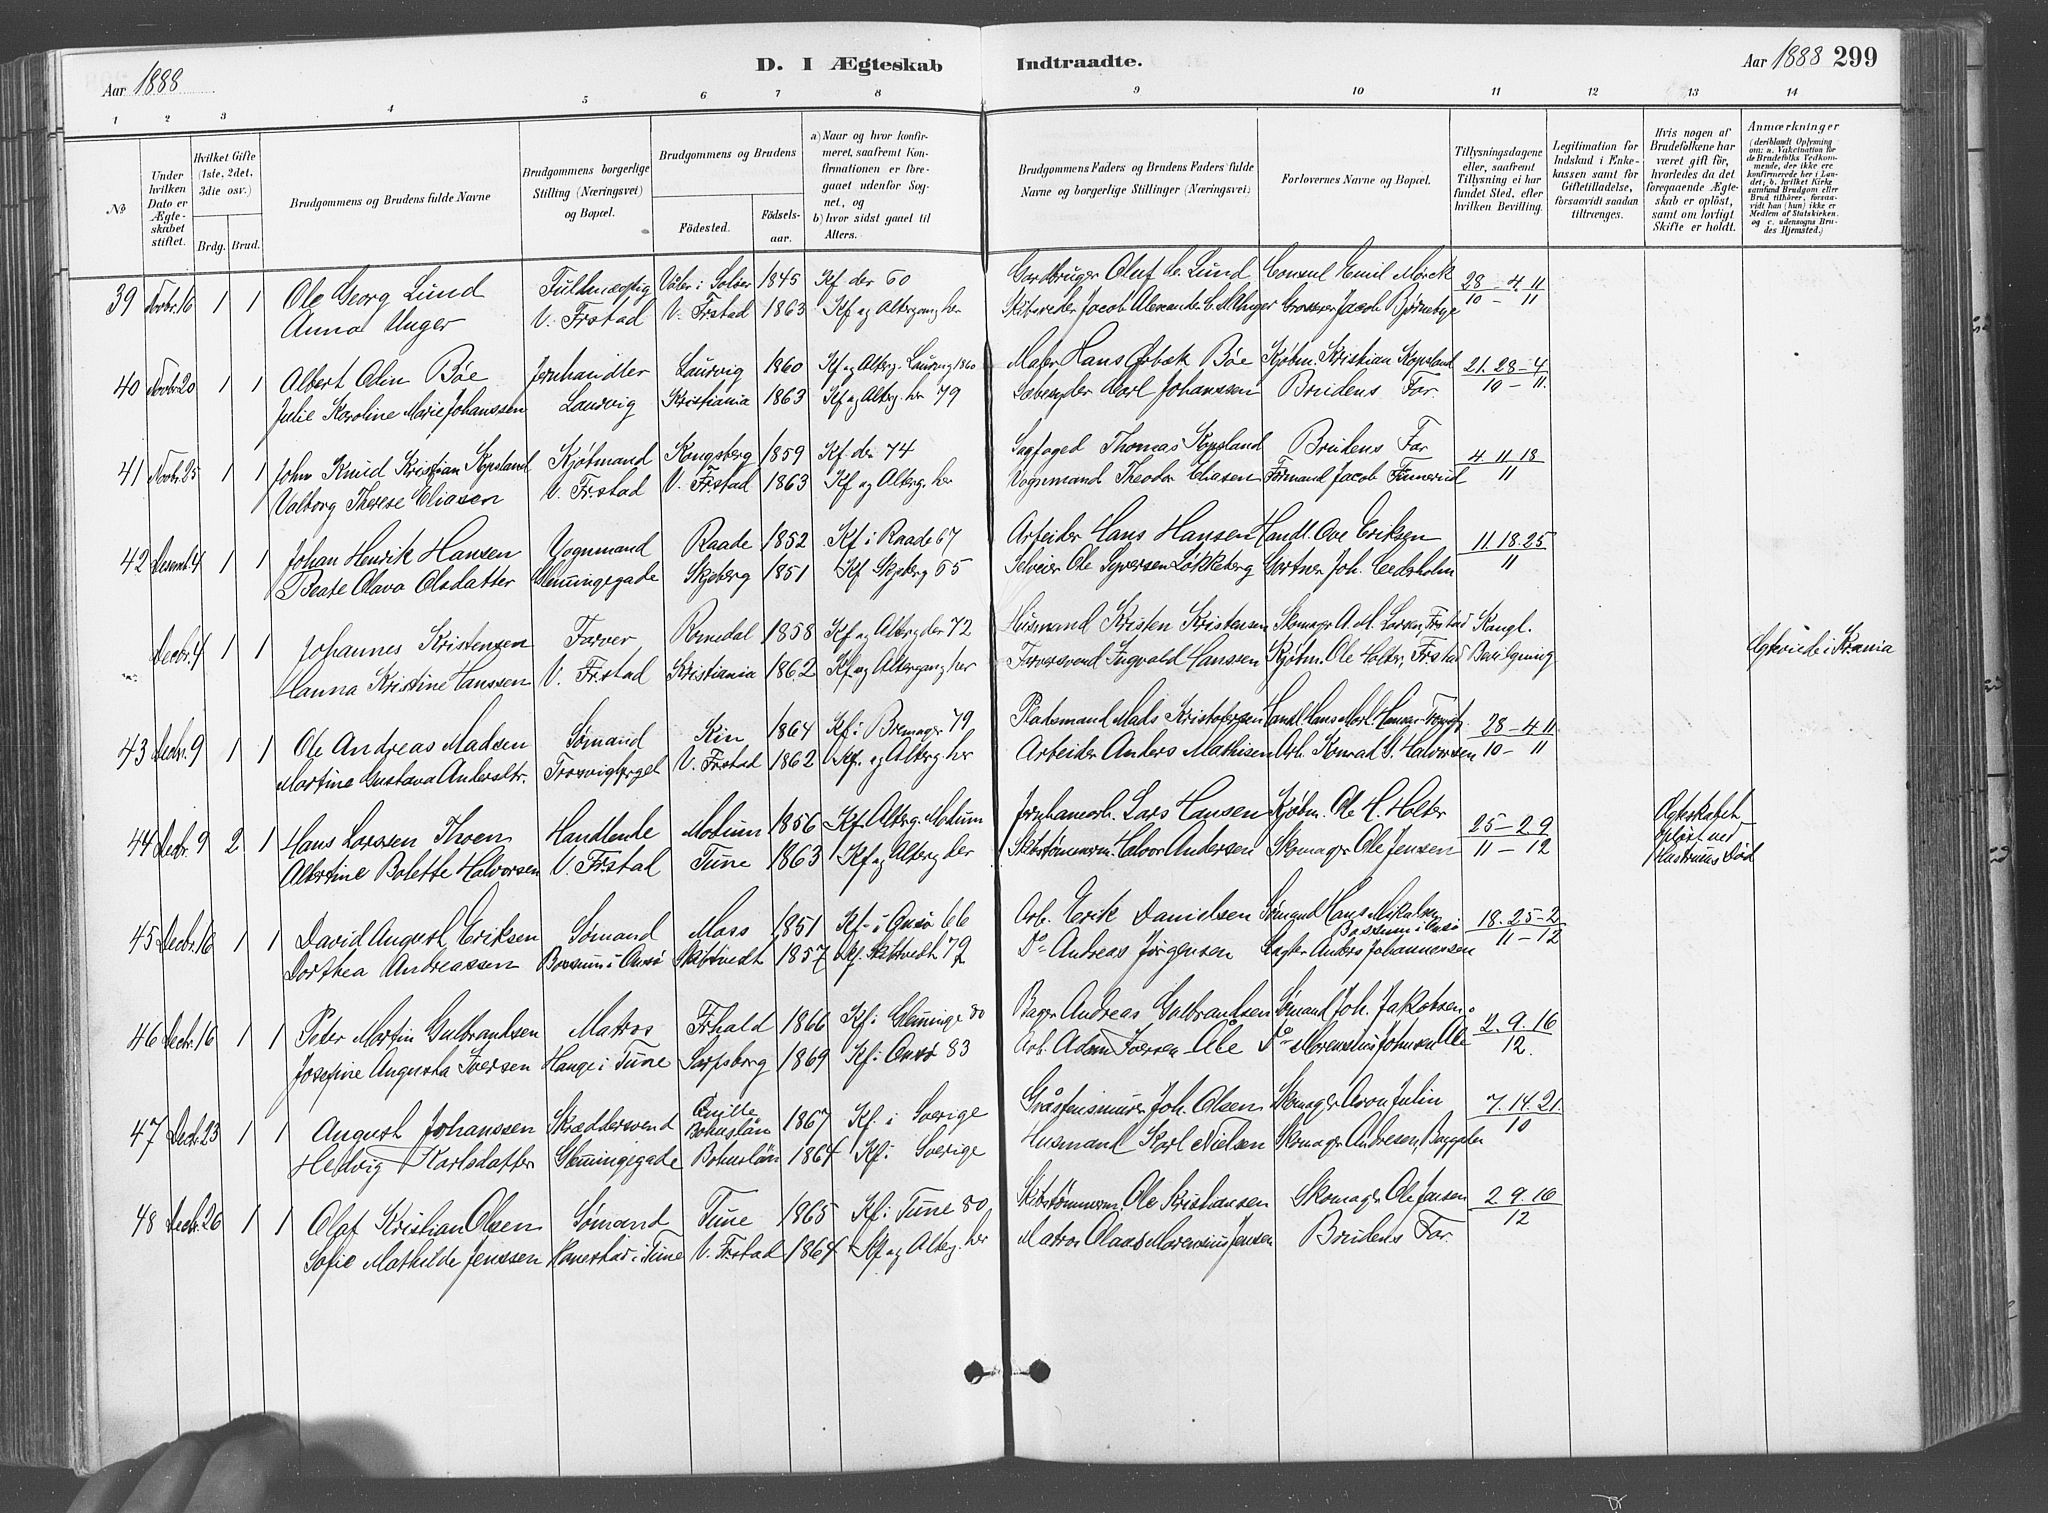 Aar 1888
D. I Ægteskab Indtraadte.
Aar 1888 299
1 2 3 4 5 6 7 8 9 10 11 12 13 14
No
Under hvilken Dato er Ægteskabet stiftet.
Hvilket Gifte (1ste, 2det, 3die osv.)
Brdg. Brud.
Brudgommens og Brudens fulde Navne
Brudgommens borgerlige Stilling (Næringsvei) og Bopæl.
Brudgommens og Brudens
Fødested. Fødselsaar.
a) Naar og hvor konfirmeret, saafremt Konfirmationen er foregaaet udenfor Sognet, og
b) hvor sidst gaaet til Alters.
Brudgommens Faders og Brudens Faders fulde Navne og borgerlige Stillinger (Næringsvei)
Forlovernes Navne og Bopæl.
Tillysningsdagene eller, saafremt Tillysning ei har fundet Sted, efter hvilken Bevilling.
Legitimation for Indskud i Enkekassen samt for Giftetilladelse, forsaavidt saadan tiltrænges.
Hvis nogen af Brudefolkene har været gift før, hvorledes da det foregaaende Ægteskab er opløst, samt om lovligt Skifte er holdt.
Anmærkninger (deriblandt Oplysning om: a. Vakcination for de Brudefolks Vedkommende, der ikke ere konfirmerede her i Landet; b. hvilket Kirkesamfund Brudgom eller Brud tilhører, forsaavidt han (hun) ikke er Medlem af Statskirken, og c. udensogns Brudes Hjemsted.)
39 Novbr. 16 1 1 Ole Georg Lund Fuldmægtig Våler i Solør 1845 Kf der 60 Gardbruger Oluf C. Lund Consul Emil Mørck 28 - 4 11
Anna Unger V. Frstad V. Frstad 1863 Kf og Altergang her Skibsreder Jacob Alexander Unger Grosserer Jacob Bjørneby 10 - 11
40 Novbr. 20 1 1 Albert Odin Bøe Jernhandler Laurvig 1860 Kf og Alterg. Laurvig Maler Hans Bøe Kjøbm. Kristian Kopsland 21. 28 - 4
Julie Karoline Marie Johanssen Laurvig Kristiania 1863 Kf og Alterg. her 79 Karl Johanssen Brudens Far. 10 - 11
41 Novbr. 25 1 1 John Knud Kristian Kopsland Kjøbmand Kongsberg 1859 Kf der 74 Sagfoged Thomas Kopsland Brudens Far 4 11 18
Valborg Therese Eliasen V. Frstad V. Frstad 1863 Kf og Alterg. her Vognmand Theodor Eliasen Formand Jacob 11
42 Desemb. 4 1 1 Johan Henrik Hansen Vognmand Raade 1852 Kf i Raade 67 Arbeider Hans Hansen Handl. Ove Eriksen 11. 18. 25
Beate Olava Olsdatter Glemmingegade Skjeberg 1851 Kf Skjeberg 65 Selveier Ole Syversen Løkkeberg Gartner Joh. Cedsholm 11
Decbr. 4 1 1 Johannes Kristensen Farver Romedal 1858 Kf og Alterg der 72 Husmand Kristen Kristensen Skomager A. M. Larsen, Frstad Kongl.
Hanna Kristine Hanssen V. Frstad Kristiania 1862 Kf og Altergang her Farversvend Ingvald Hanssen Kjøbm. Ole Holter, Frstad Bevilgning
Ægteviede i Krania
43 Decbr. 9 1 1 Ole Andreas Madsen Sømand Kin 1864 Kf i Bremager 79 Pladsmand Mads Kristofersen Handl. Hans Mort. Hansen 28 - 4 11
Martine Gustava Andersdtr. Trosvigberget V. Frstad 1862 Kf. og Alterg. her Arbeider Anders Mathisen Arb. Konrad G. Halvorsen 10 - 11
44 Decbr. 9 2 1 Hans Larssen Thoen Handlende Modum 1856 Kf. Alterg. Modum Lars Hansen Kjøbm. Ole H. Holter 25 - 2 9
Albertine Bolette Halvorsen V. Frstad Tune 1863 Kf og Alterg der Skibstømmerm. Halvor Andersen Skomager Ole Jensen 11 - 12
Ægteskabet opløst ved Hustruens Død
45 Decbr. 16 1 1 David August Eriksen Sømand Moss 1851 Kf i Onsø 66 Arb. Erik Danielsen Sømand Hans Mikalsen Bossum i Onsø 18. 25 - 2
Dorthea Andreassen Bossum i Onsø Skibtvedt 1857 Kf. Skibtvedt 72 Do Andreas Jørgensen Anders Johannessen 11 - 12
46 Decbr. 16 1 1 Peter Martin Gulbrandsen Matros Frhald 1866 Kf i Glemminge 80 Bager Andreas Gulbrandsen Sømand Joh. Jakobsen 2. 9. 16
Josefine Augusta Iversen Hauge i Tune Sarpsborg 1869 Kf i Onsø 83 Arb. Adam Iversen Åle Do Morensius Johnsen Åle 12
47 Decbr. 23 1 1 August Johanssen Skræddersvend Qville Bohuslän 1867 Kf. i Sverige Gråstensmurer Joh. Olsen Skomager Aron Julin 7. 14. 21
Hedvig Karlsdatter Glemmingegade Bohuslän 1864 Kf. i Sverige Husmand Karl Nielsen Skomager Andresen, 10
48 Decbr. 26 1 1 Olaf Kristian Olsen Sømand Tune 1865 Kf i Tune 80 Skibstømmerm. Ole Kristiansen Skomager Ole Jensen 2 9. 16
Sofie Mathilde Jenssen Hanestad i Tune V. Frstad 1864 Kf og Alterg. her Matros Claus Morensius Jensen Brudens Far. 12